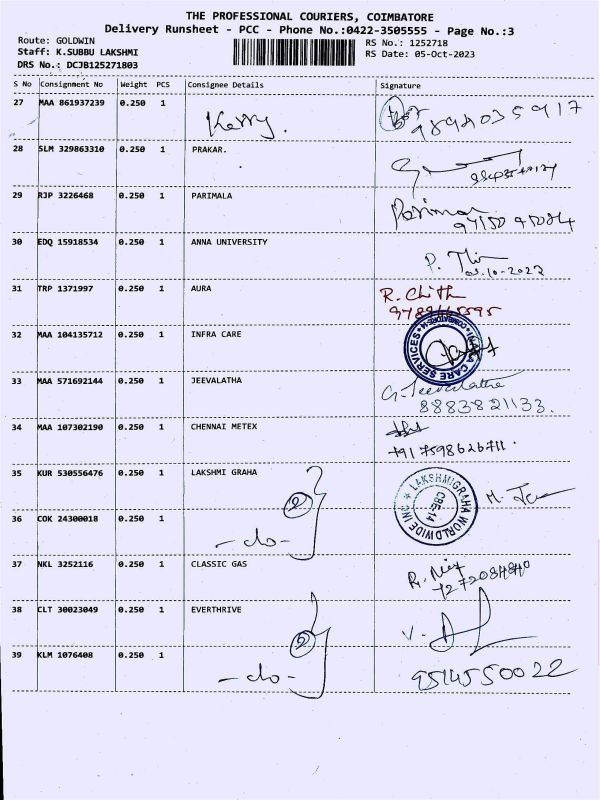 THE PROFESSIONAL COURIERS, COIMBATORE
Delivery Runsheet - PCC - Phone No.:0422-3505555 - Page No.:3
Route: GOLDWIN
Staff: K.SUBBU LAKSHMI
DRS No.: DCJB125271803
RS No.: 1252718
RS Date: 05-Oct-2023
S No Consignment No Weight PCS Consignee Details Signature
27 MAA 861937239 0.250 1 Kerry.
28 SLM 329863310 0.250 1 PRAKAR.
29 RJP 3226468 0.250 1 PARIMALA
30 EDQ 15918534 0.250 1 ANNA UNIVERSITY
31 TRP 1371997 0.250 1 AURA R. Chith
32 MAA 104135712 0.250 1 INFRA CARE
33 MAA 571692144 0.250 1 JEEVALATHA G. Jeevalatha
8883821133.
34 MAA 107302190 0.250 1 CHENNAI METEX
+917598626711.
35 KUR 530556476 0.250 1 LAKSHMI GRAHA 2 LAKSHMIGRAHA WORLDWIDE INC CBE-14
36 COK 24300018 0.250 1 -do-
37 NKL 3252116 0.250 1 CLASSIC GAS
7272084840
38 CLT 30023049 0.250 1 EVERTHRIVE 2
39 KLM 1076408 0.250 1 -do- 9514550022